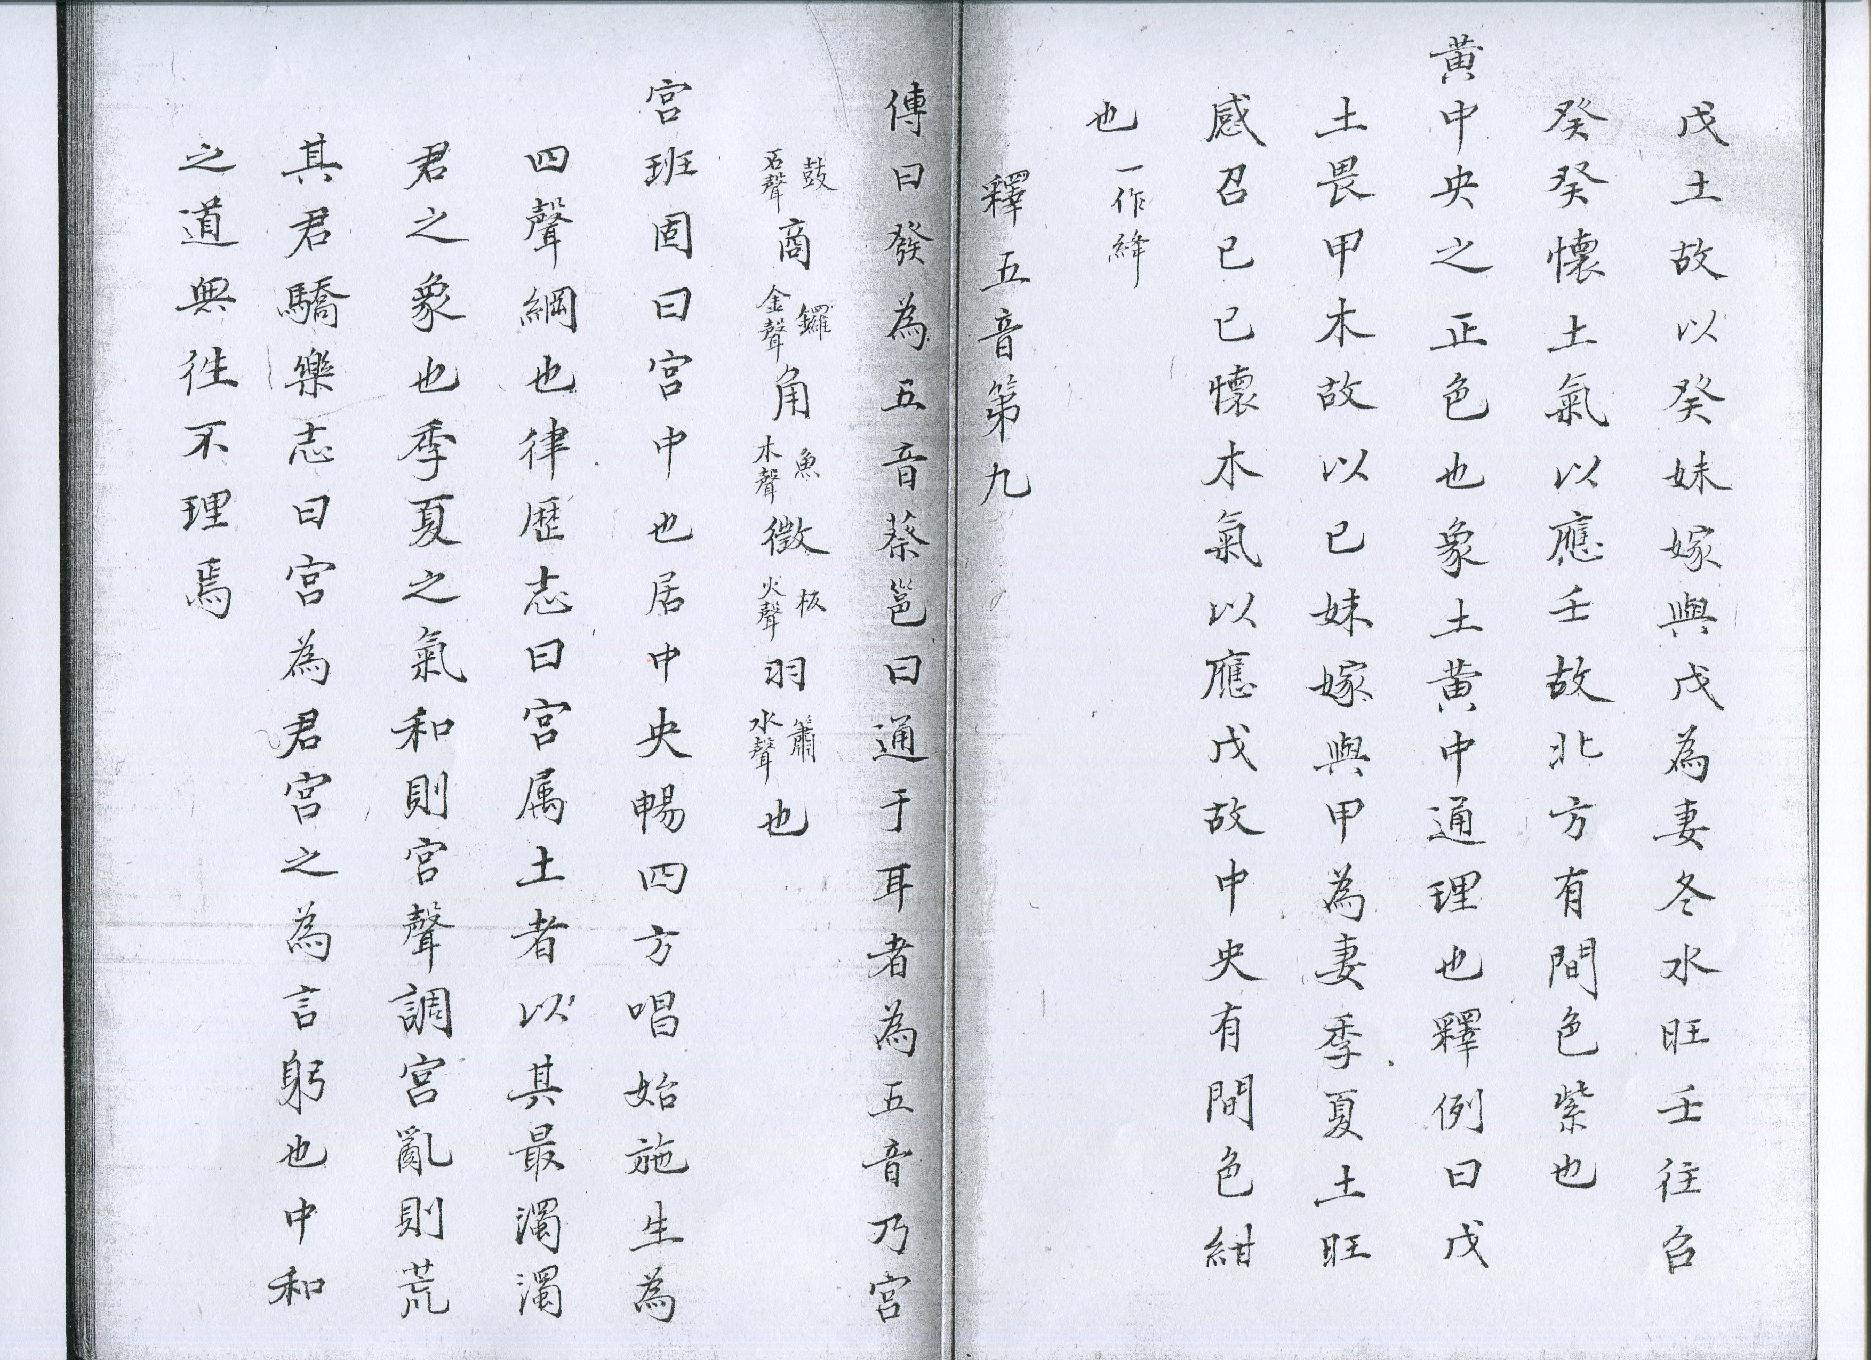 戊土故以癸妹嫁與戊為妻冬水旺壬往召
癸癸懷土氣以應壬故北方有間色紫也
黄中央之正色也象土黄中通理也釋例曰戊
土畏甲木故以已妹嫁與甲為妻季夏土旺
感召已已懷木氣以應戊故中央有間色紺
也一作絳
釋五音第九
傳曰發為五音蔡邕曰通于耳者為五音乃宮
鼓石聲商鑼金聲角魚木聲徵板火聲羽簫水聲也
宮班固曰宮中也居中央暢四方唱始施生為
四聲綱也律歷志曰宮属土者以其最濁濁
君之象也季夏之氣和則宮聲調宮亂則荒
其君驕樂志曰宮為君宮之為言躬也中和
之道無徃不理焉